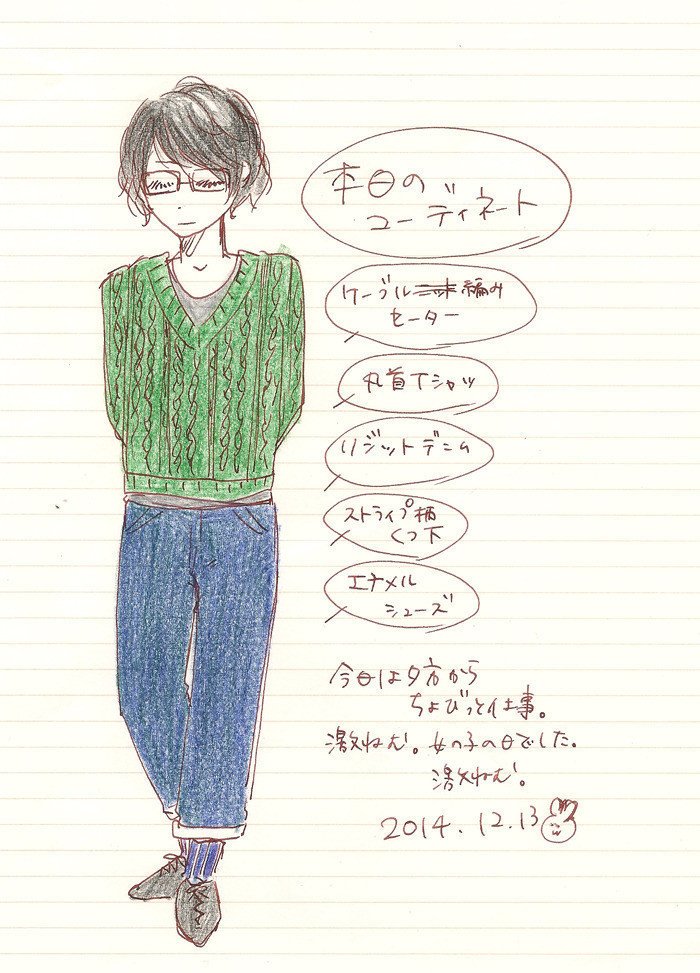 本日の
コーディネート
ケーブル編み
セーター
丸首Tシャツ
リジットデニム
ストライプ柄
くつ下
エナメル
シューズ
今日は夕方から
ちょびっと仕事。
激ねむ。女の子の日でした。
激ねむ。
2014.12.13